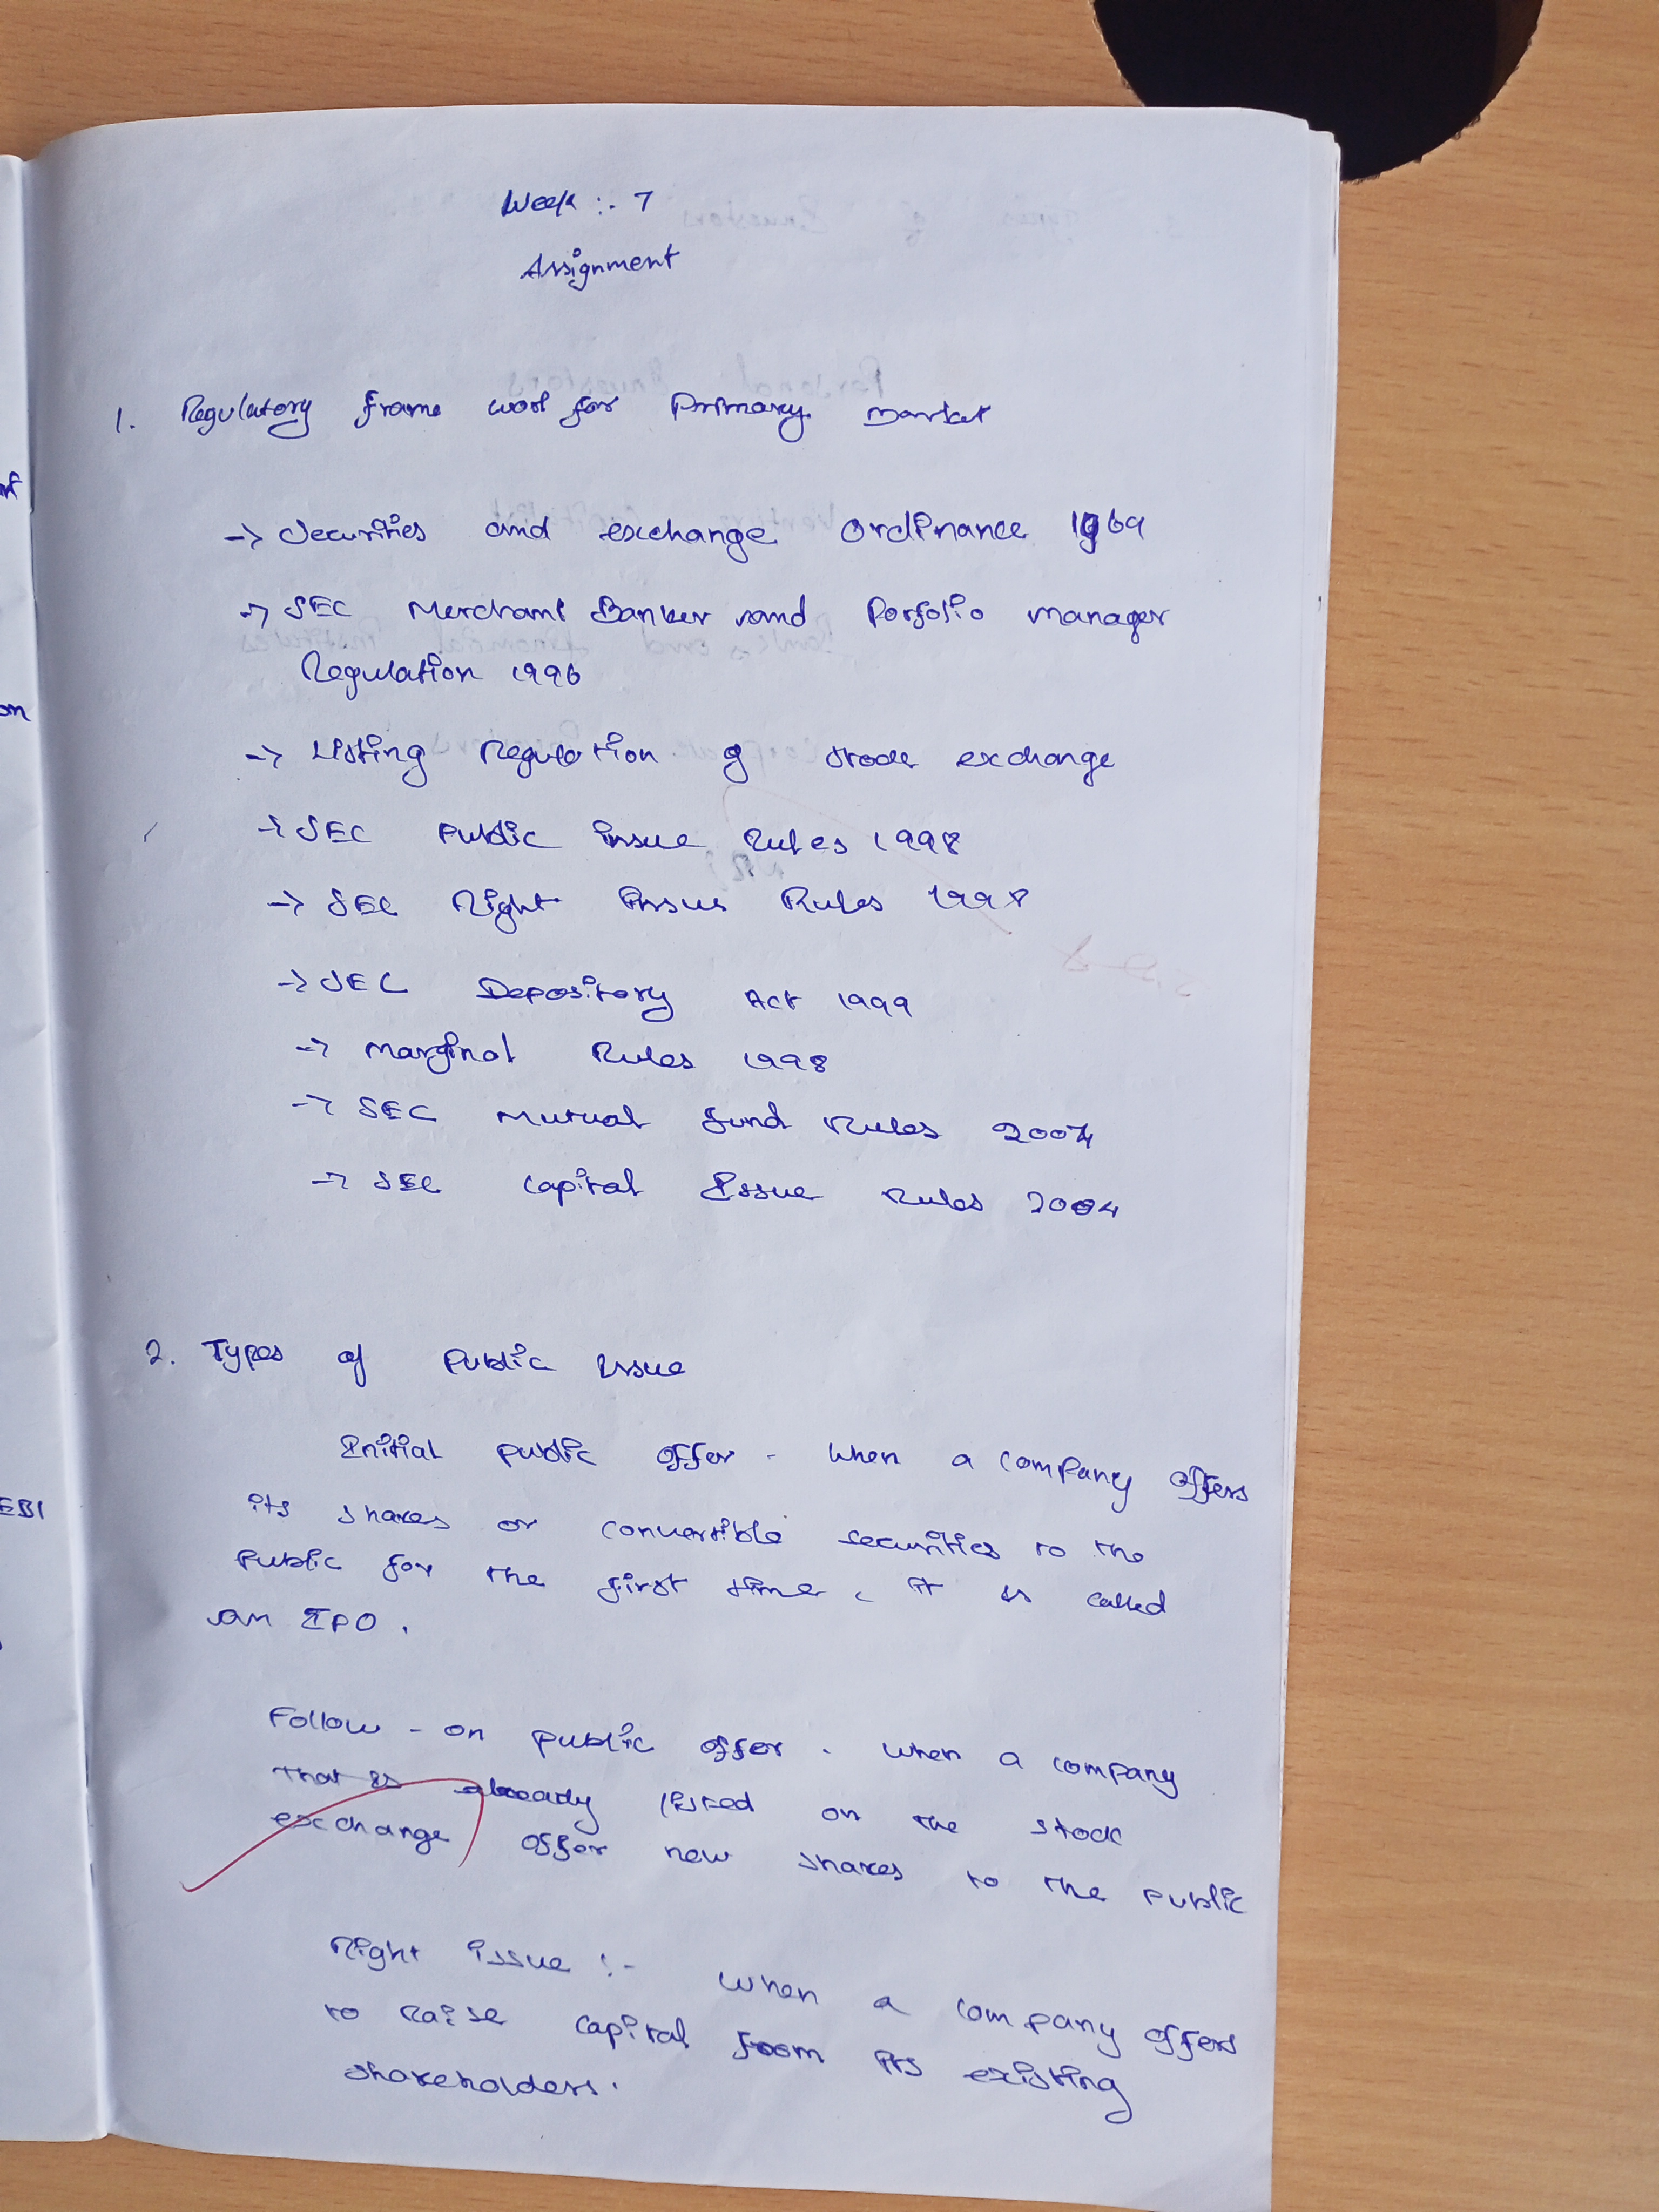 Week :- 7
Assignment
1. Regulatory frame wook for Primary market
-> Securities and exchange Ordinance 1969
-> SEC Merchant Banker and Porfolio manager
Regulation 1996
-> Listing Regulation of stock exchange
-> SEC Public issue Rules 1998
-> SEC Right Issue Rules 1998
-> SEC Depository Act 1999
-> Marginal Rules 1998
-> SEC Mutual fund Rules 2007
-> SEC Capital Issue Rules 2004
2. Types of Public Issue
Initial public offer - When a company offers
its shares or convertible securities to the
public for the first time, it is called
an IPO.
Follow - on public offer - When a company
that is already listed on the stock
exchange offer new shares to the public
Right issue :- When a company offers
to raise capital from its existing
shareholders.